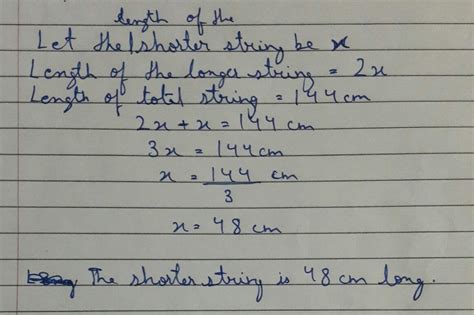 length of the
Let the shorter string be x
Length of the longer string = 2x
Length of total string = 144 cm
2x + x = 144 cm
3x = 144 cm
x = 144 cm
3
x = 48 cm
The shorter string is 48 cm long.